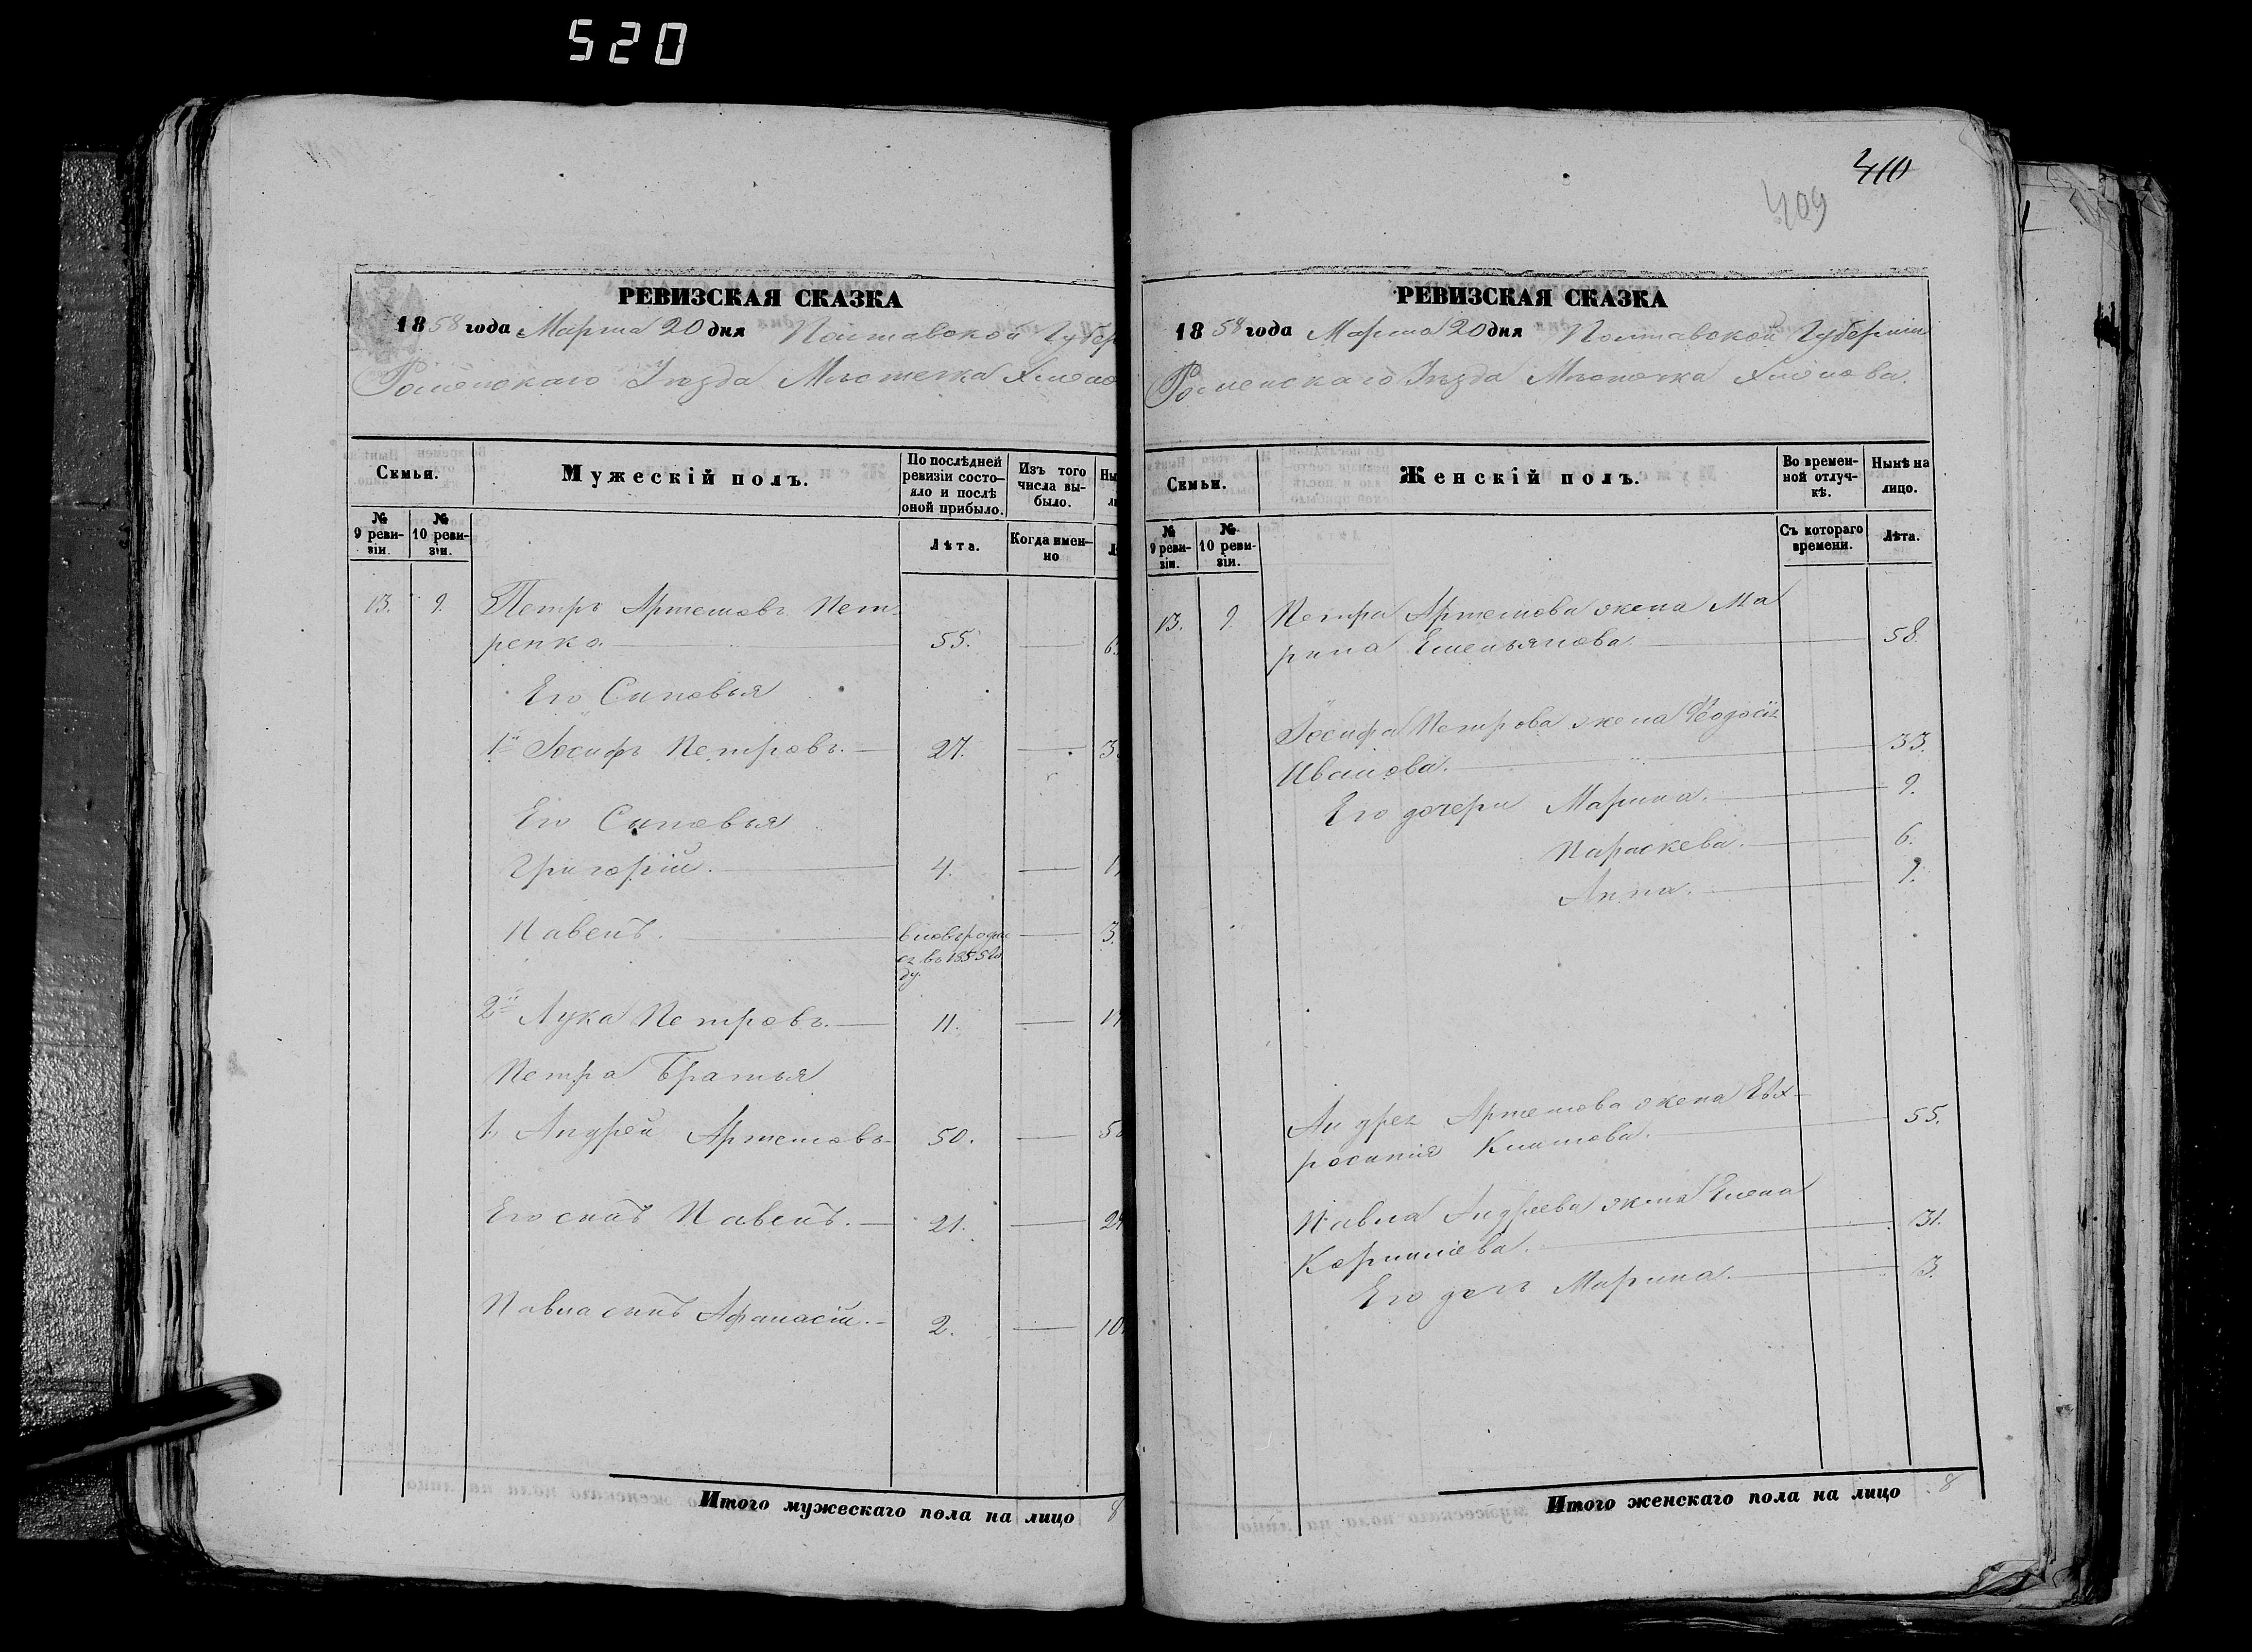 520
РЕВИЗСКАЯ СКАЗКА
1858 года Марта 20 дня Полтавской Губер
Роменскаго Уѣзда Мѣстечка Хмѣло
Семьи.
Мужескій полъ.
По послѣдней ревизіи состо-
яло и послѣ
оной прибыло.
Изъ того
числа вы-
было.
Ны
л
№
9 реви-
зіи.
№
10 реви-
зіи.
Лѣта.
Когда имен-
но
Л
13. 9. Петръ Артемовъ Пет-
ренко. 55. 6
Его Сыновья
1й Іосифъ Петровъ. 27. 3
Его Сыновья
Григорій. 4. 1
Павелъ. вновь родил 3.
ся въ 1855 го
ду.
2й Лука Петровъ. 11. 1
Петра Братья
1. Андрей Артемовъ 50. 5
Его сынъ Павелъ. 21. 29
Павла сынъ Афанасій. 2. 10.
Итого мужескаго пола на лицо 8
410
409
РЕВИЗСКАЯ СКАЗКА
1858 года Марта 20 дня Полтавской Губерніи
Роменскаго Уѣзда Мѣстечка Хмѣлова.
Семьи.
Женскій полъ.
Во времен-
ной отлуч-
кѣ.
Нынѣ на
лицо.
№
9 реви-
зіи.
№
10 реви-
зіи.
Съ котораго
времени.
Лѣта.
13. 9. Петра Артемова жена Ма
рина Емельянова 58.
Іосифа Петрова жена Феодосія
Иванова. 33.
Его дочери Марина. 9.
Параскева. 6.
Анна. 1.
Андрея Артемова жена Евх-
росинія Климова. 55.
Павла Андреева жена Елена
Корниліева. 31.
Его дочь Марина. 3.
Итого женскаго пола на лицо 8